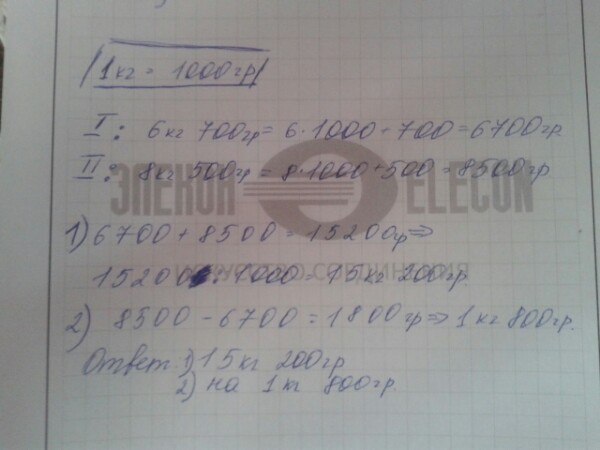 1кг = 1000гр
I: 6кг 700гр = 6·1000+700=6700гр.
II: 8кг 500гр = 8·1000+500=8500гр
ЭЛЕКОН ELECON
1) 6700+8500=15200гр⇒
15200:1000=15кг 200гр.
ИСКУССТВО СОЕДИНЕНИЯ
2) 8500-6700=1800гр⇒1кг 800гр.
Ответ: 1) 15кг 200гр
2) на 1кг 800гр.